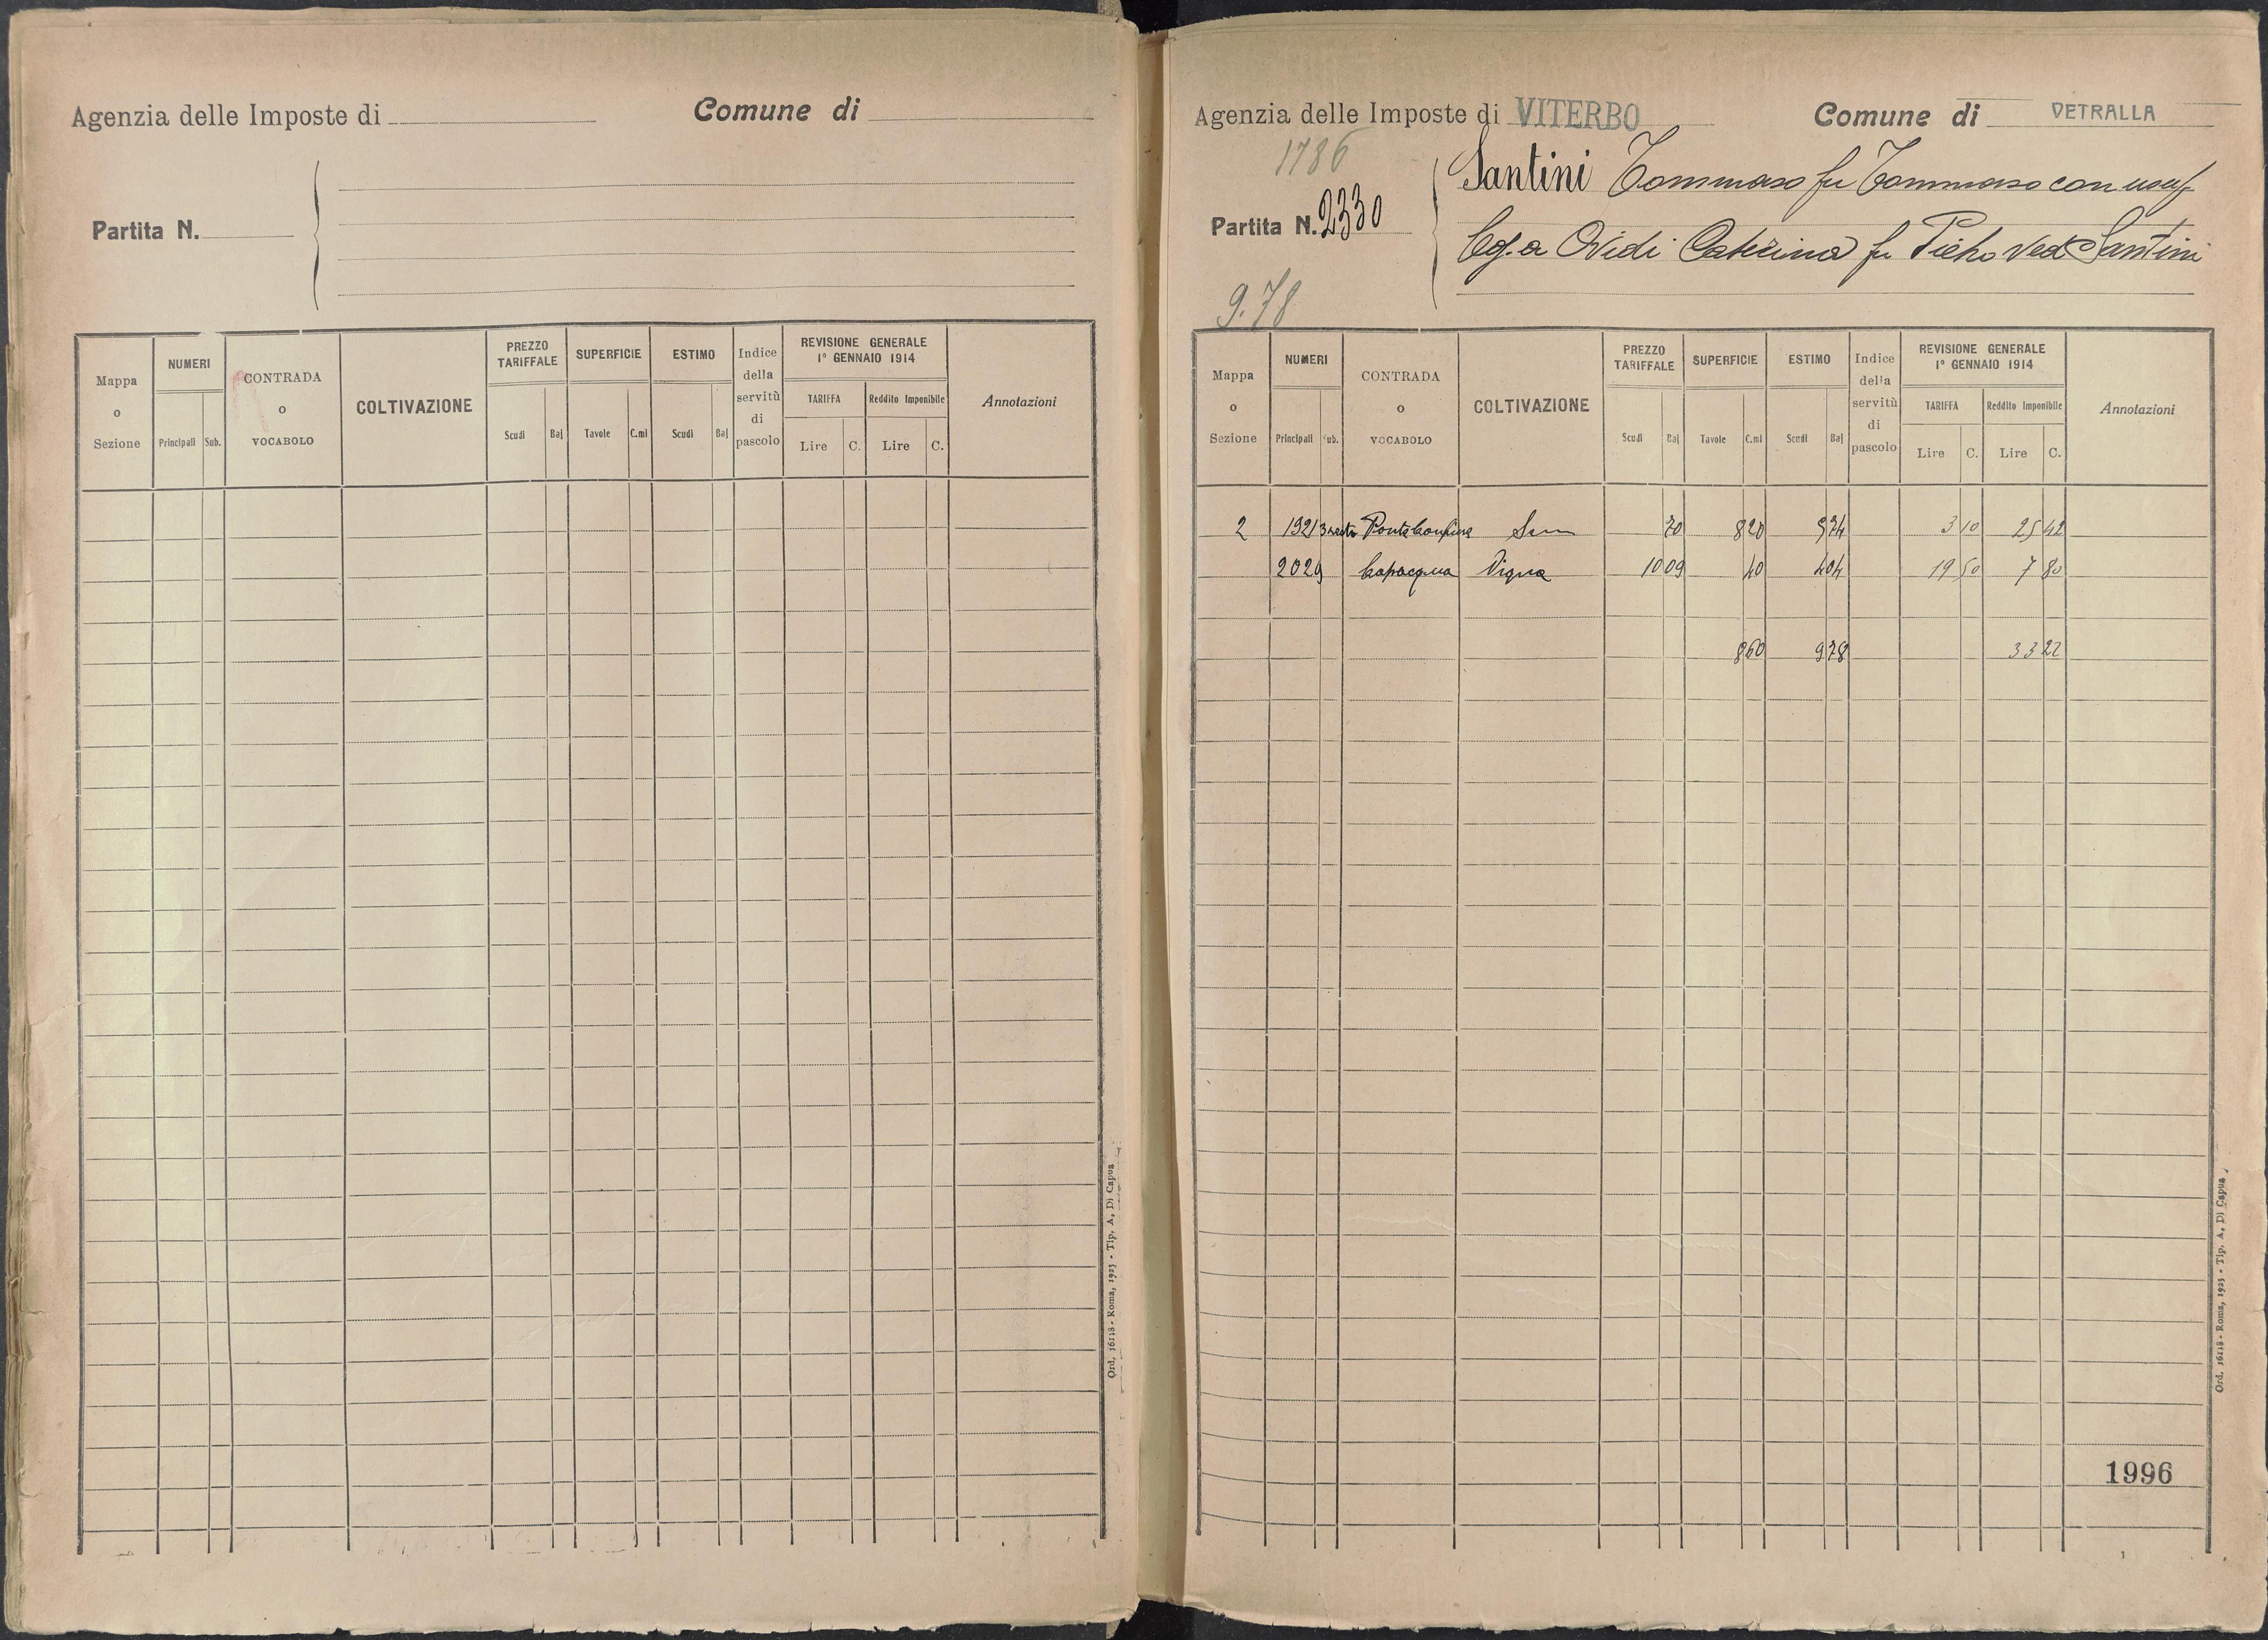 Agenzia delle Imposte di
Comune di
Partita N.
Mappa o Sezione
NUMERI
Principali Sub.
CONTRADA o VOCABOLO
COLTIVAZIONE
PREZZO TARIFFALE
Scudi Baj
SUPERFICIE
Tavole C.mi
ESTIMO
Scudi Baj
Indice della servitù di pascolo
REVISIONE GENERALE
1° GENNAIO 1914
TARIFFA Reddito Imponibile
Lire C. Lire C.
Annotazioni
Ord. 16118 - Roma, 1923 - Tip. A. Di Capua
Agenzia delle Imposte di VITERBO
Comune di VETRALLA
1786
Partita N. 2330
Santini Tommaso fu Tommaso con usuf
Leg. a Ovidi Caterina fu Pietro Ved Santini
9.78
Mappa o Sezione
NUMERI
Principali Sub.
CONTRADA o VOCABOLO
COLTIVAZIONE
PREZZO TARIFFALE
Scudi Baj
SUPERFICIE
Tavole C.mi
ESTIMO
Scudi Baj
Indice della servitù di pascolo
REVISIONE GENERALE
1° GENNAIO 1914
TARIFFA Reddito Imponibile
Lire C. Lire C.
Annotazioni
2 1921 3 Sem 70 8 20 5 74 3 10 25 42
2029 Capacqua Vigna 10 09 40 4 04 19 50 7 80
8 60 9 78 33 22
1996
Ord. 16118 - Roma, 1923 - Tip. A. Di Capua